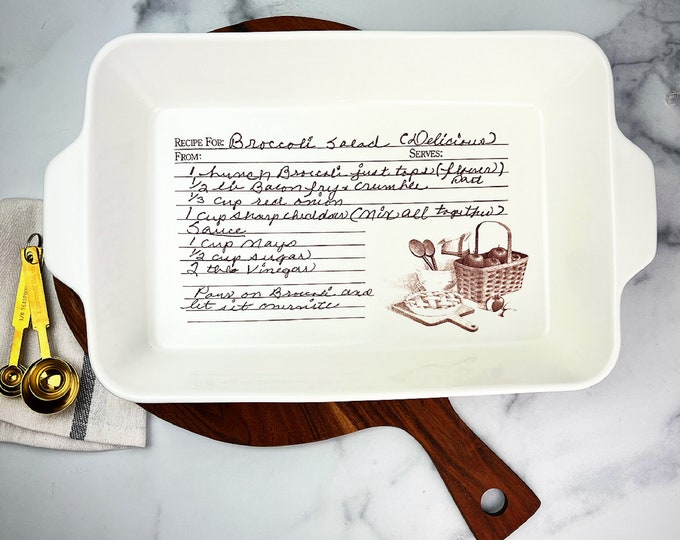 RECIPE FOR: Broccoli Salad (Delicious)
FROM: SERVES:
1 bunch Broccoli just tops (flower)
Part
1/2 lb Bacon fry & Crumble
1/3 cup red onion
1 Cup sharp cheddar (Mix all together)
Sauce
1 Cup Mayo
1/2 cup sugar
2 tbls Vinegar
Pour on Broccoli and
let sit overnite